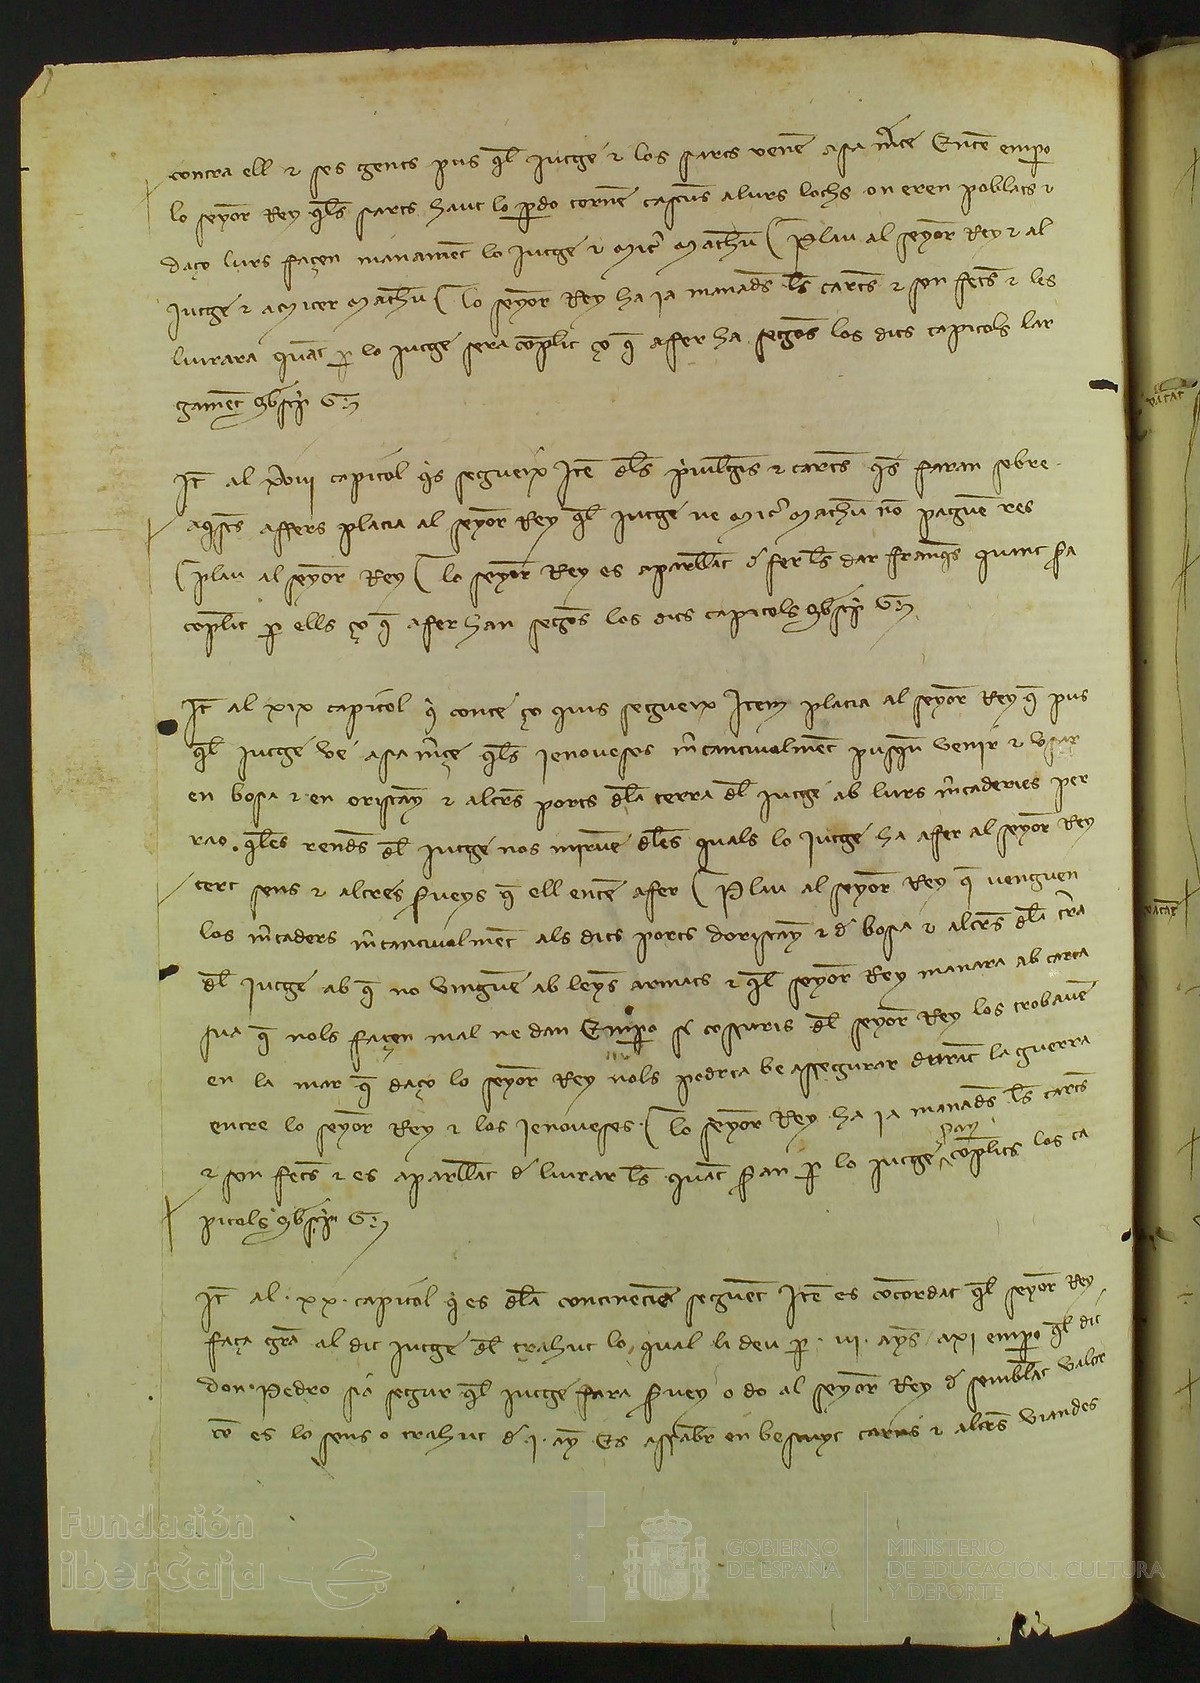 contra ell & ses gents pus q̅l jutge & los sarts vene̅ a sa m̅ce Ente̅ emp̅o
lo seyor Rey q̅ls sarts haut lo p̅do torne̅ cascu̅s a lurs lochs on eren poblats &
daço lurs façen manament̅ lo jutge & Mic̅ Mathu̅ ( Plau al seyor Rey & al
jutge & a Micer Mathu̅ ( Lo seyor Rey ha ja manad̅s l̅s cart̅s & son fet̅s & les
liurara qua̅t p̅ lo jutge sera co̅plit ço q̅ a fer ha sego̅s los dits capitols lar
game̅t
It̅ al xviii capitol q̅s segueix Ite̅ d̅ls p̅uil̅gis & cart̅s q̅s faran sobre
aq̅sts affers placia al seyor Rey q̅l jutge ne Mic̅ Mathu̅ no̅ pague̅ res
( plau al seyor Rey ( lo seyor Rey es aparll̅at d̅ fer l̅s dar franq̅s quant s̅a
co̅plit p̅ ells ço q̅ a fer han sego̅s los dits capitols
It̅ al xix capitol q̅ conte ço quis segueix Item placia al seyor Rey q̅ pus
q̅l jutge ve a sa m̅çe q̅ls jenoveses m̅cantiuolme̅t pusq̅n venir & usar
en bosa & en oristay̅ & altr̅s ports d̅la terra d̅l jutge ab lurs m̅caderies per
rao q̅les rend̅s d̅l jutge nos minue̅ d̅les quals lo jutge ha a fer al seyor Rey
cert sens & altres s̅ueys q̅ ell ente̅ a fer ( Plau al seyor Rey q̅ venguen
los m̅caders m̅cantiuolme̅t als dits ports doristay̅ & d̅ bosa & altr̅s d̅la t̅ra
d̅l jutge ab q̅ no vingue̅ ab leny̅s armats & q̅l seyor Rey manara ab carta
sua q̅ nols façen mal ne dan Emp̅o si cossaris d̅l seyor Rey los trobave̅
en la mar q̅ daço lo seyor Rey nols podria be assegurar dura̅t la guerra
entre lo seyor Rey & los jenoveses. ( Lo seyor Rey ha ja manad̅s l̅s cart̅s
& son fet̅s & es aparll̅at d̅ liurar l̅s qua̅t s̅an p̅ lo jutge co̅plits los ca
pitols
It̅ al . xx . capitol q̅ es d̅la continencia segue̅t Ite̅ es co̅cordat q̅l seyor Rey
faça gr̅a al dit jutge d̅l trahut lo qual li deu p̅ . iii . ay̅s axi emp̅o q̅l dit
don Pedro sia segur q̅l jutge fara s̅uey o do al seyor Rey d̅ sembla̅t valor
co̅ es lo sens o trahut d̅ . i . ay̅ Es assabr̅ en bescuyt carns & altr̅s viandes